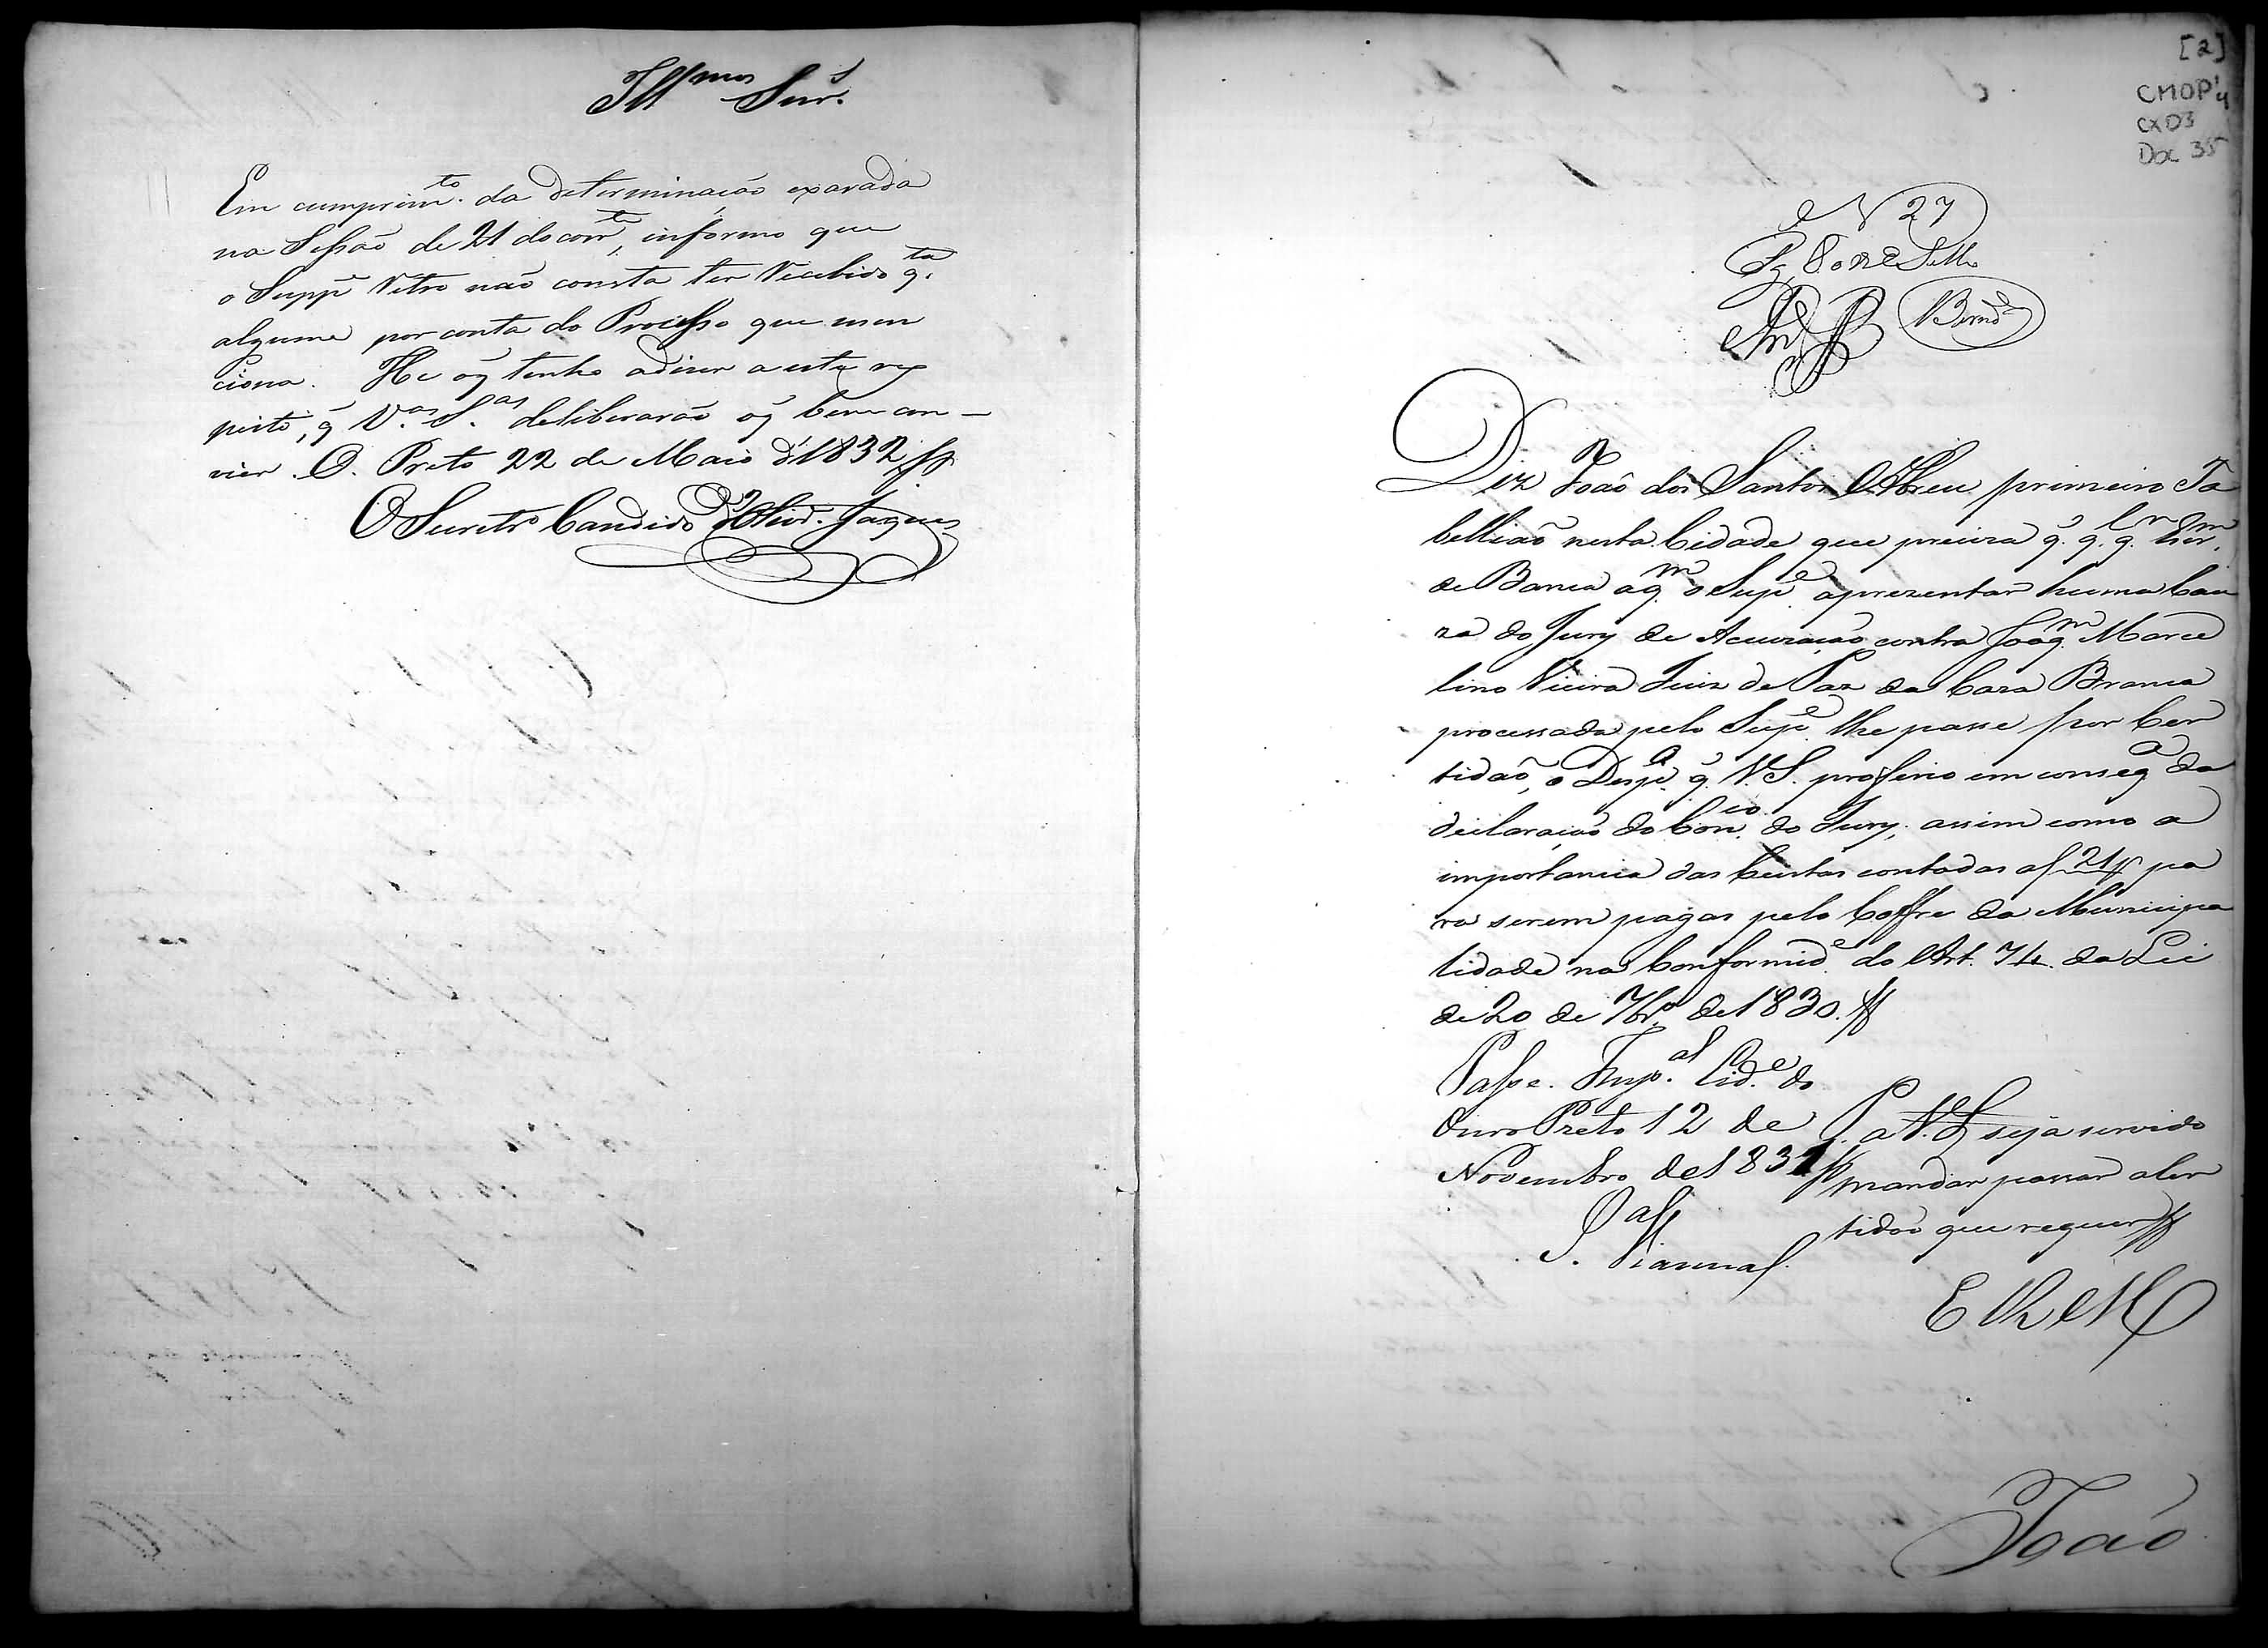 Ill.mos Snr.s
Em cumprim.to da determinação exarada
na Sessão de 21 do corr.te, informo que
o Supp.e retro não consta ter recebido q.ta
alguma por conta do Processo que men
ciona. He oq̃ tenho adizer a este res
peito, q̃ V.as S.as deliberarão oq̃ bem con-
vier. O. Preto 22 de Maio d'1832
O Secretr.o Candido d'Olivr.a Jaques
[2]
CMOP
CX 03
Doc 35
N 27
Pg 80 rs de Sello
Diz João dos Santos Abreu primeiro Ta
bellião nesta Cidade que preciza q. q. q.
de Banca aq.m o Sup.e aprezentar huma Cau
za do Jury de Acuzação contra Joaq.m Marce
lino Vieira Juiz de Paz da Caza Branca
processada pelo Sup.e lhe passe por Cer
tidão, o Desp.o q. V.S. proferio em conseq.a da
declaração do Con.co do Jury, assim como a
importancia das Custas contadas af 21 pa
ra serem pagas pelo Coffre da Municipa
lidade na Conformid.e do Art. 74. da Lei
de 20 de 7br.o de 1830.
Passe. Imp.al Cid.e do
Ouro Preto 12 de
Novembro de 1831
Vianna
P. a V.S. seja servido
mandar passar a Cer
tidão que requer
E R M
João